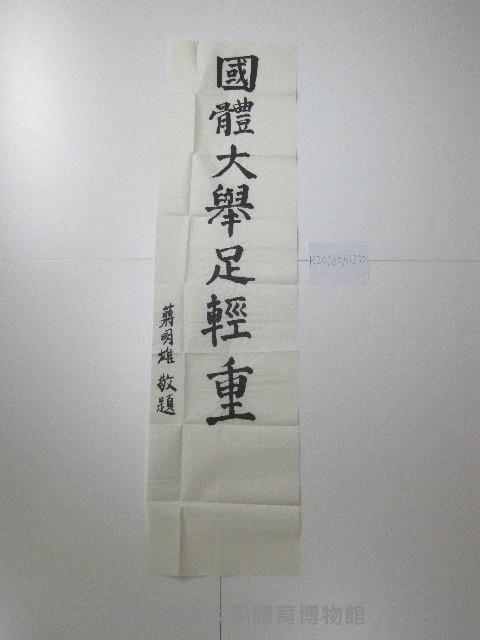 國體大舉足輕重
蔣明雄 敬題
學體育博物館